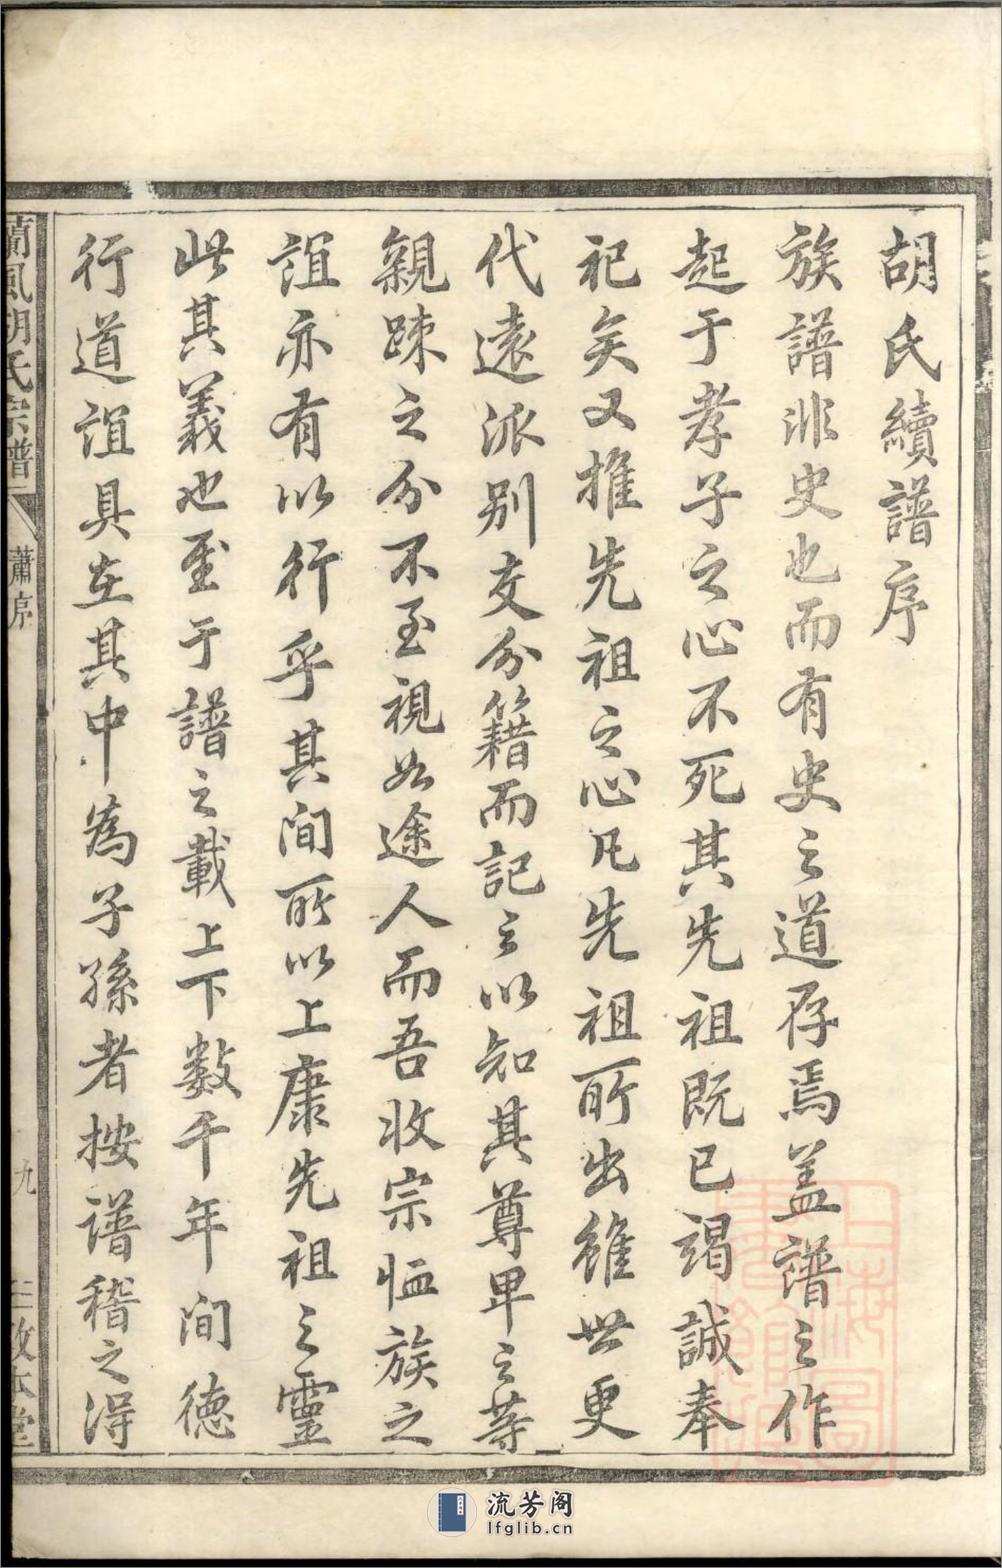 胡氏續譜序
族譜非史也而有史之道存焉盖譜之作
起于孝子之心不死其先祖既已竭誠奉
祀矣又推先祖之心凡先祖所出雖世更
代遠派别支分籍而記之以知其尊卑之等
親疎之分不至視如途人而吾收宗恤族之
誼亦有以行乎其间所以上康先祖之靈
此其義也至于譜之載上下数千年间德
行道誼具在其中為子孫者按譜稽之得
蘭風胡氏宗譜
蕭序
九
敦本堂
流芳阁
lfglib.cn